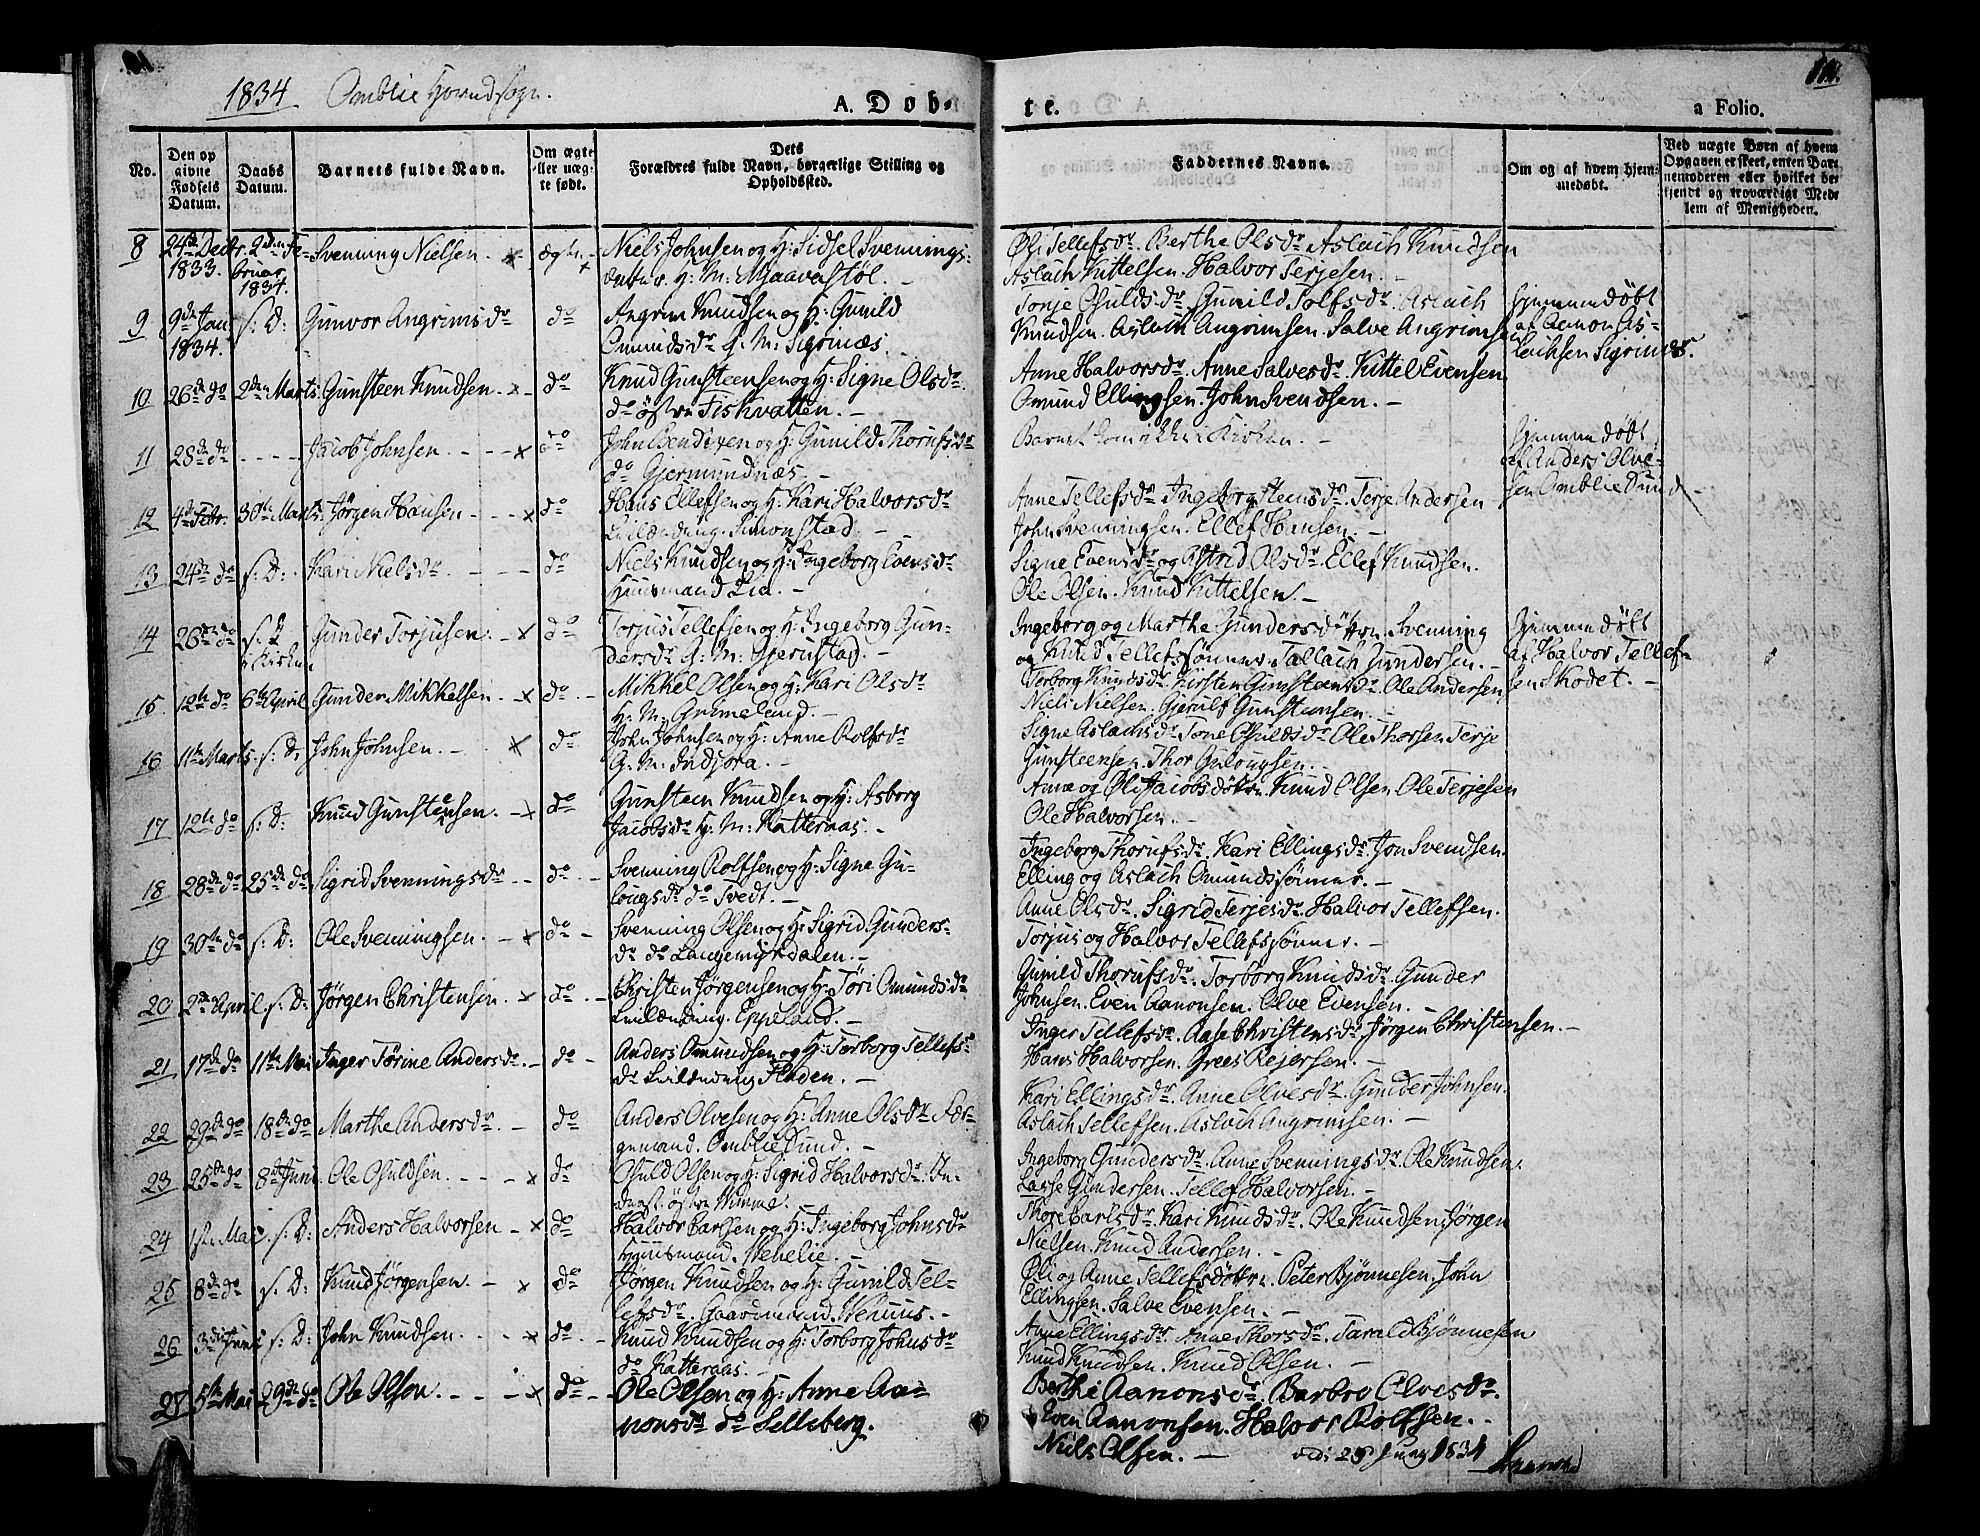 1834 Omblie Hovedsogn.
A. Døb-
te.
a Folio.
No.
Den op
givne
Fødsels
Datum.
Daabs
Datum.
Barnets fulde Navn.
Om ægte
eller uæg-
te født.
Dets
Forældres fulde Navn, borgerlige Stilling og
Opholdssted.
Faddernes Navne.
Om og af hvem hjem-
medøbt.
Ved uægte Børn af hvem
Opgaven er skeet, enten Bar-
nemoderen eller hvilket be-
kjendt og troværdigt Med-
lem af Menigheden.
8 24de Decbr. 1833. 2den Februar 1834. Svenning Nielsen. ægte. Niels Johnsen og H: Sidsel Svennings-
datter. H: M: Mjaavastøl.
Øli Tellefsdr. Berthe Olsdr. Aslach Knudsen
Aslach Kittelsen. Halvor Terjesen.
9 9de Jan 1834. s: D: Gunvor Angrimsdr do Angrim Knudsen og H: Gunild
Omundsdr G: M: Sigrinæs.
Tonje Osulds dr. Gunild Rolfsdr. Aslach
Knudsen. Aslach Angrimsen. Salve Angrimsen
Hjemmedøbt
af Aanon As-
lachsen Sigrinæs.
10 26de do 2den Marts. Gunsteen Knudsen. do Knud Gunsteensen og H: Signe Olsdr.
do östre Fiskvatten.
Anne Halvorsdr. Anne Salvesdr. Kittel Evensen
Omund Ellingsen. John Svendsen.
11 28de do Jacob Johnsen. do John Bendixen og H: Gunild Thorufsdr
do Gjermundnæs
Barnet kom ikke i Kirken.
Hjemmedøbt
af Anders Olve-
sen Omblie Sund
12 4de Febr. 30te Marts. Jörgen Hansen do Hans Ellefsen og H: Kari Halvorsdr
Simonstad
Anne Tellefsdr. Ingeborg Steensdr. Terje Andersen
John Svenningsen. Ellef Hansen.
13 24de do s: D: Kari Nielsdr. do Niels Knudsen og H: Ingeborg Evensdr
Huusmand Lia.
Signe Evensdr og Astrid Olsdr. Ellef Knudsen.
Ole Olsen. Knud Kittelsen.
14 26de do s: D i Kirken Gunder Torjusen. do Torjus Tellefsen og H: Ingeborg Gun-
dersdr G: M: Gjernstad.
Ingeborg og Marthe Gundersdöttre. Svenning
og Knud Tellefssönner. Tallach Gundersen.
Hjemmedøbt
af Halvor Tellef-
sen Skodet.
15 12te do 6te April Gunder Mikkelsen. do Mikkel Olsen og H: Kari Olsdr
H: M: Grimeland.
Torborg Knudsdr. Kirsten Gunsteensdr. Ole Andersen
Niels Nielsen. Gjerulf Gunsteensen.
16 11te Marts. s: D: John Johnsen. do John Johnsen og H: Anne Rolfsdr
G: M: Indjora.
Signe Aslachsdr Tone Osuldsdr. Ole Thorsen Terje
Gunsteensen. Thor Gulougsen.
17 12te do s: D: Knud Gunsteensen. do Gunsteen Knudsen og H: Asborg
Jacobsdr H: M: Katteraas.
Anne og Øli Jacobsdöttre. Knud Olsen Ole Terjesen
Ole Halvorsen.
18 28de do 25de do Sigrid Svenningsdr do Svenning Rolfsen og H: Signe Gu-
lougsdr do Tvedt.
Ingeborg Thorufsdr. Kari Ellingsdr. Jon Svendsen.
Elling og Aslach Omundssönner.
19 30te do s: D: Ole Svenningsen. do Svenning Olsen og H: Sigrid Gunders-
dr do Langemyrdalen.
Anne Olsdr. Sigrid Terjesdr. Halvor Tellefsen.
Torjus og Halvor Tellefssönner.
20 2den April. s: D: Jörgen Christensen. do Christen Jörgensen og H: Töri Omundsdr
Eppeland.
Gunild Thorufsdr. Torborg Knudsdr. Gunder
Johnsen. Even Aanonsen. Olve Evensen.
21 17de do 11te Mai Inger Törine Andersdr. do Anders Omundsen og H: Torborg Tellefs-
dr
Inger Tellefsdr. Aase Christensdr. Jörgen Christensen.
Hans Halvorsen. Grees Rejersen.
22 29de do 18de do Marthe Andersdr. do Anders Olvesen og H: Anne Olsdr Fær-
gemand. Omblie Sund.
Kari Ellingsdr. Anne Olvesdr. Gunder Johnsen.
Aslach Tellefsen. Aslach Angrimsen.
23 25de do 8de Juni Ole Osuldsen. do Osuld Olsen og H: Sigrid Halvorsdr. In-
derst östre Wimme.
Ingeborg Gundersdr. Anne Svenningsdr. Ole Knudsen.
Lasse Gundersen. Tellef Halvorsen.
24 1ste Mai s: D: Anders Halvorsen do Halvor Larssen og H: Ingeborg Johnsdr
Huusmand. Wehelie.
Thore Larsdr. Kari Knudsdr. Ole Knudsen. Jörgen
Nielsen. Knud Andersen.
25 8de do s: D: Knud Jörgensen. do Jörgen Knudsen og H: Gunild Tel-
lefsdr. Gaardmand. Wenuus.
Øli og Anne Tellefsdöttre. Peter Bjönnesen. John
Ellingsen. Salve Evensen.
26 3die Juni s: D: John Knudsen. do Knud Knudsen og H: Torborg Johnsdr
do Katteraas.
Anne Ellingsdr. Anne Thorsdr. Tarald Bjönnesen
Knud Knudsen. Knud Olsen.
27 5te Mai 29de do Ole Olsen. do Ole Olsen og H: Anne Aa-
nonsdr do Selleberg.
Berthe Aanonsdr. Barbro Olvesdr.
Even Aanonsen. Halvor Rolfsen.
Niels Olsen. 1834